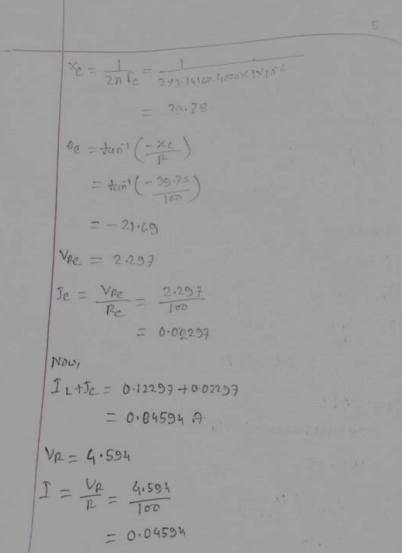 5
Xc = 1/2πfc = 1/2×3.1416×4000×1×10^-6
= 39.78
θc = tan⁻¹(-Xc/R)
= tan⁻¹(-39.78/100)
= -21.69
VRc = 2.297
Ic = VRc/Rc = 2.297/100
= 0.02297
Now,
IL+Ic = 0.12297+0.02297
= 0.04594 A
VR = 4.594
I = VR/R = 4.594/100
= 0.04594